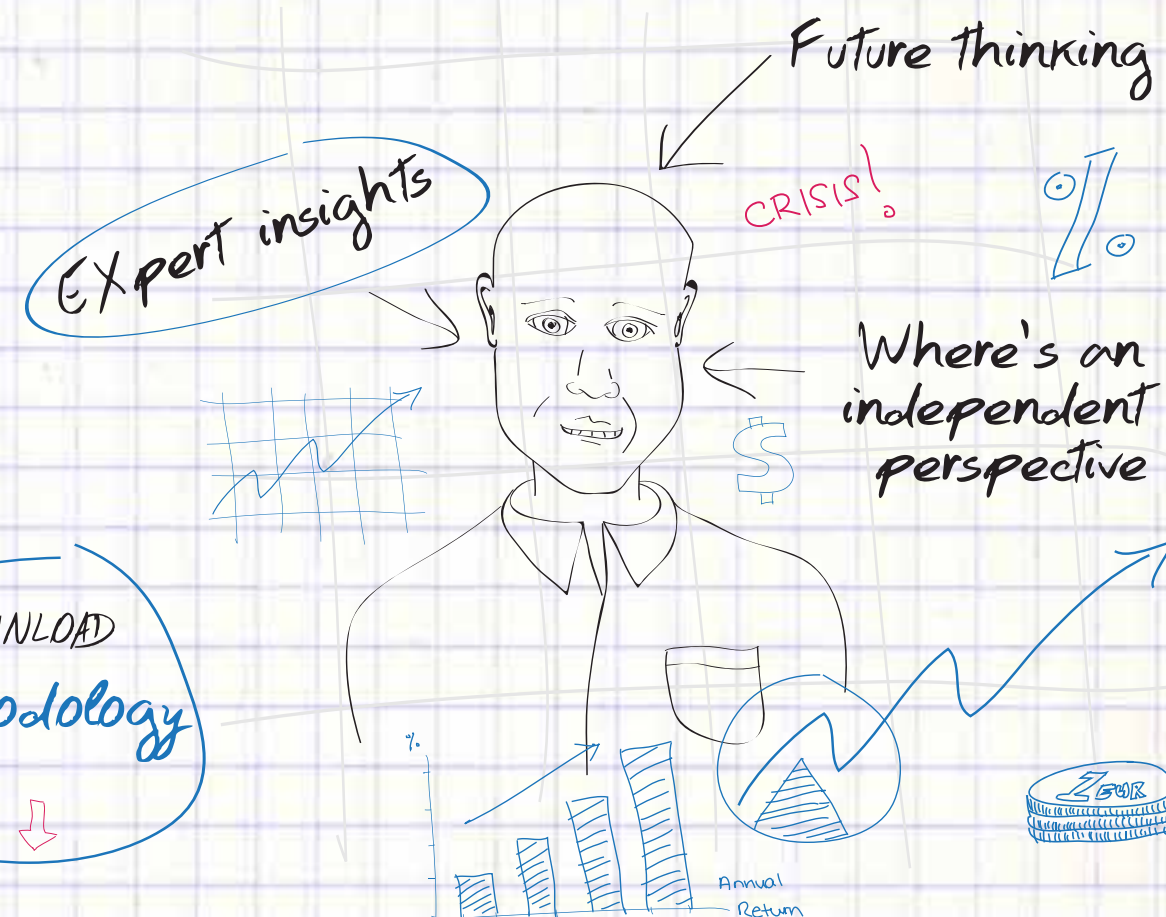 Future thinking
Expert insights
CRISIS!
%
Where's an
independent
perspective
$
NLOAD
odology
%
1 EUR
Annual
Return